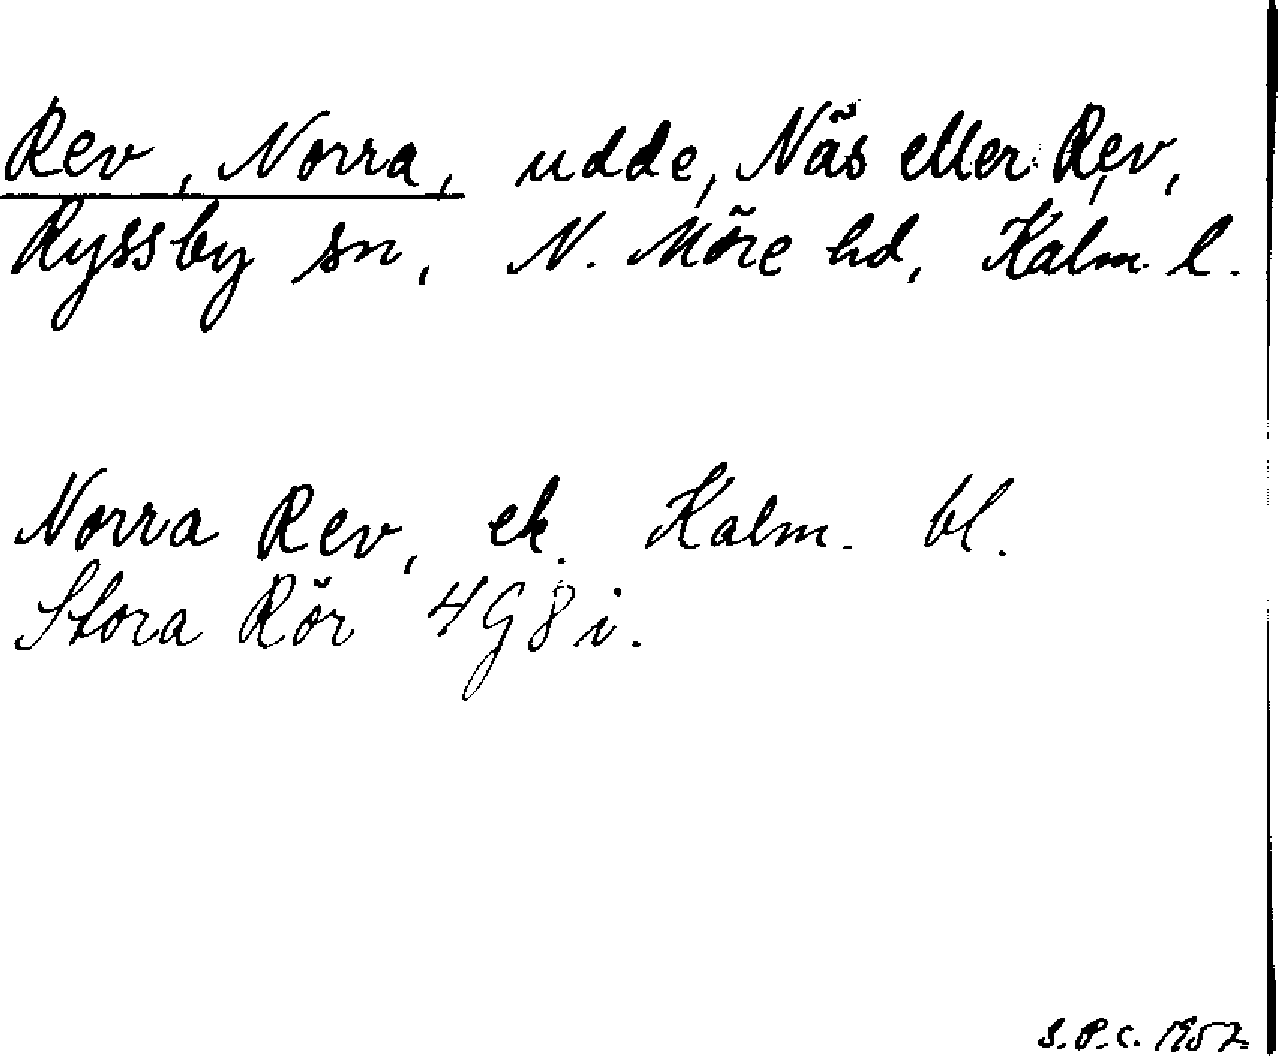 Rev, Norra, udde, Näs eller Rev,
Ryssby sn, N. Möre hd, Kalm. l.
Norra Rev, ek. Kalm. bl.
Stora Rör 4G8i.
S.P.C. 1957